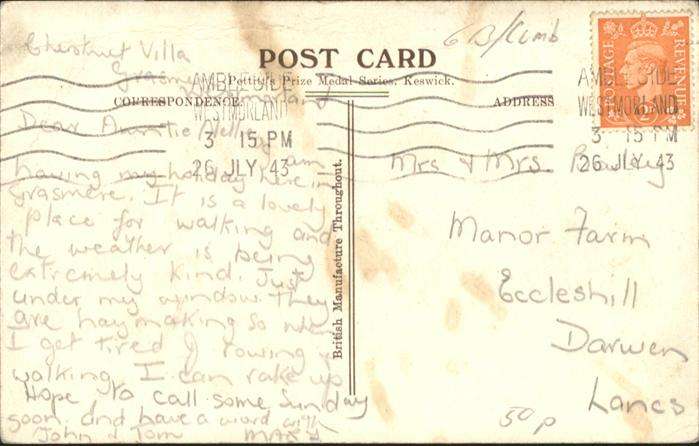 6 B/Cumb
Chestnut Villa
POST CARD
Grasmere
Pettitt's Prize Medal Series, Keswick.
CORRESPONDENCE
ADDRESS
AMBLESIDE
WESTMORLAND
3 15 PM
26 JLY 43
AMBLESIDE
WESTMORLAND
3 15 PM
26 JLY 43
POSTAGE
REVENUE
Dear Auntie Nelly
I am
having my holiday here in
Grasmere. It is a lovely
place for walking and
the weather is being
extremely kind. Just
under my window they
are haymaking so when
I get tired of rowing &
walking I can rake up
Hope to call some Sunday
soon and have a word with
John & Tom
British Manufacture Throughout.
Mrs & Mrs
Manor Farm
Eccleshill
Darwen
Lancs
50p